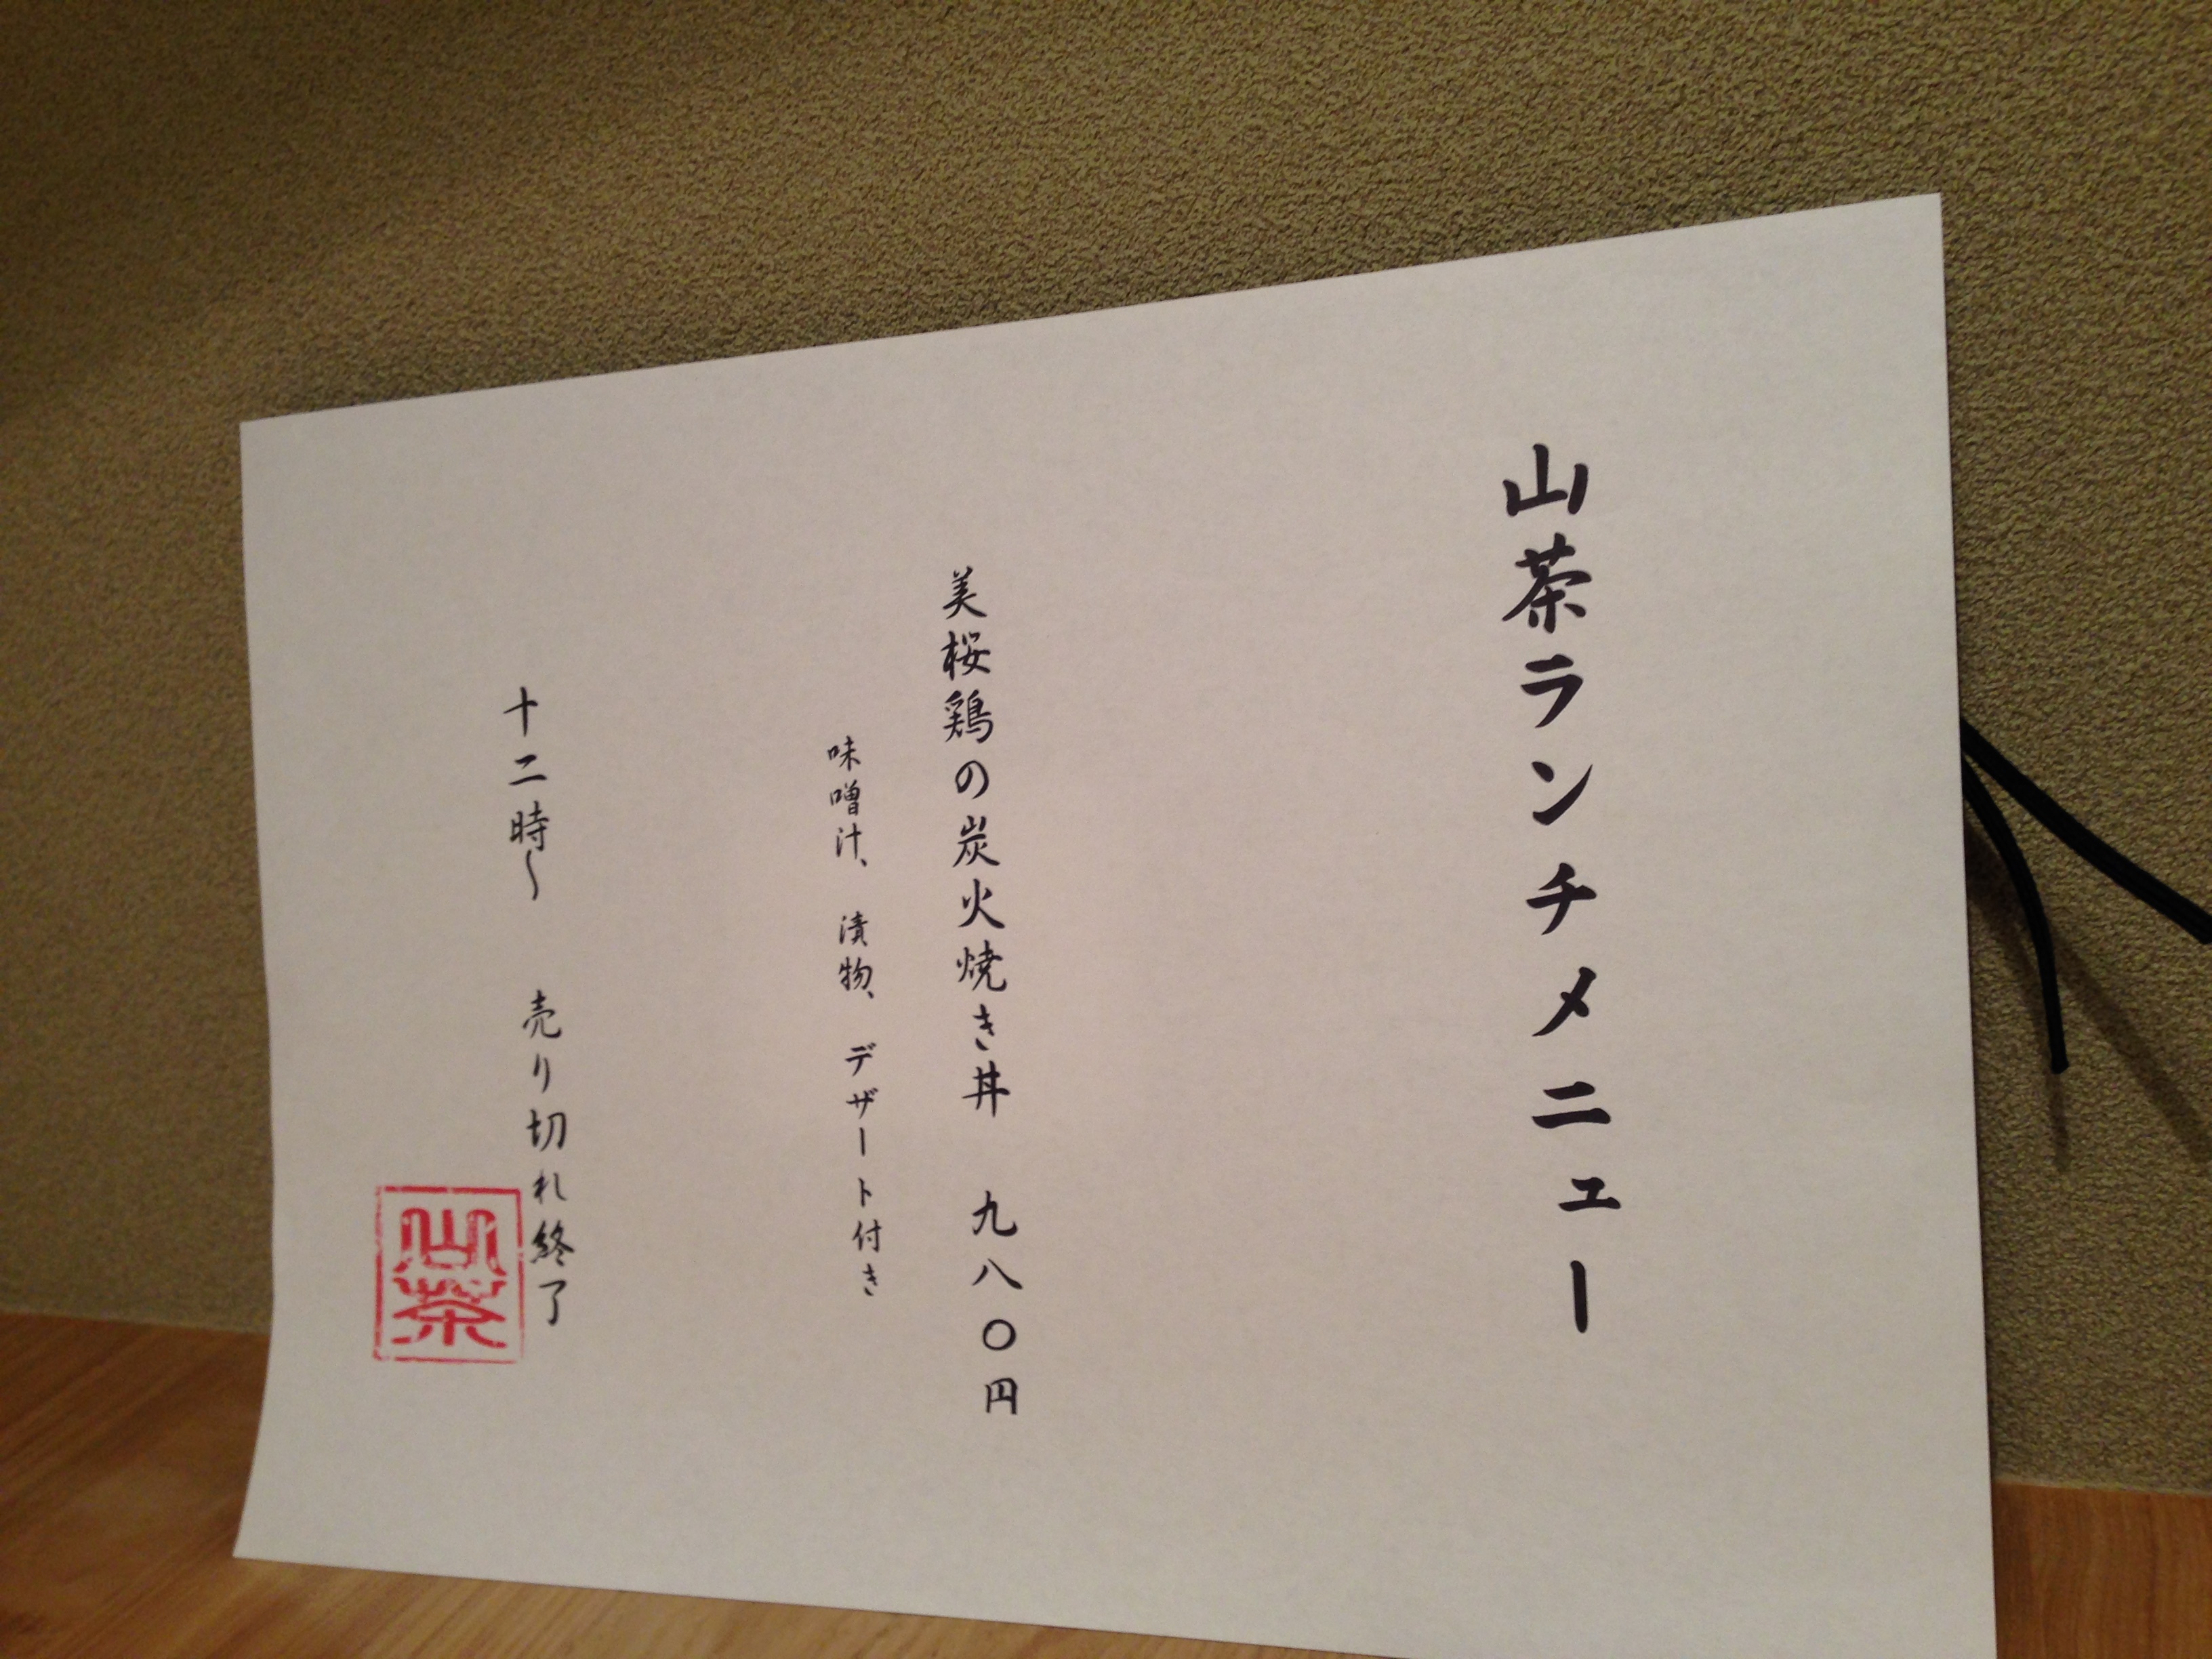 山茶ランチメニュー
美桜鶏の炭火焼き丼 九八〇円
味噌汁、漬物、デザート付き
十二時〜 売り切れ終了
山茶